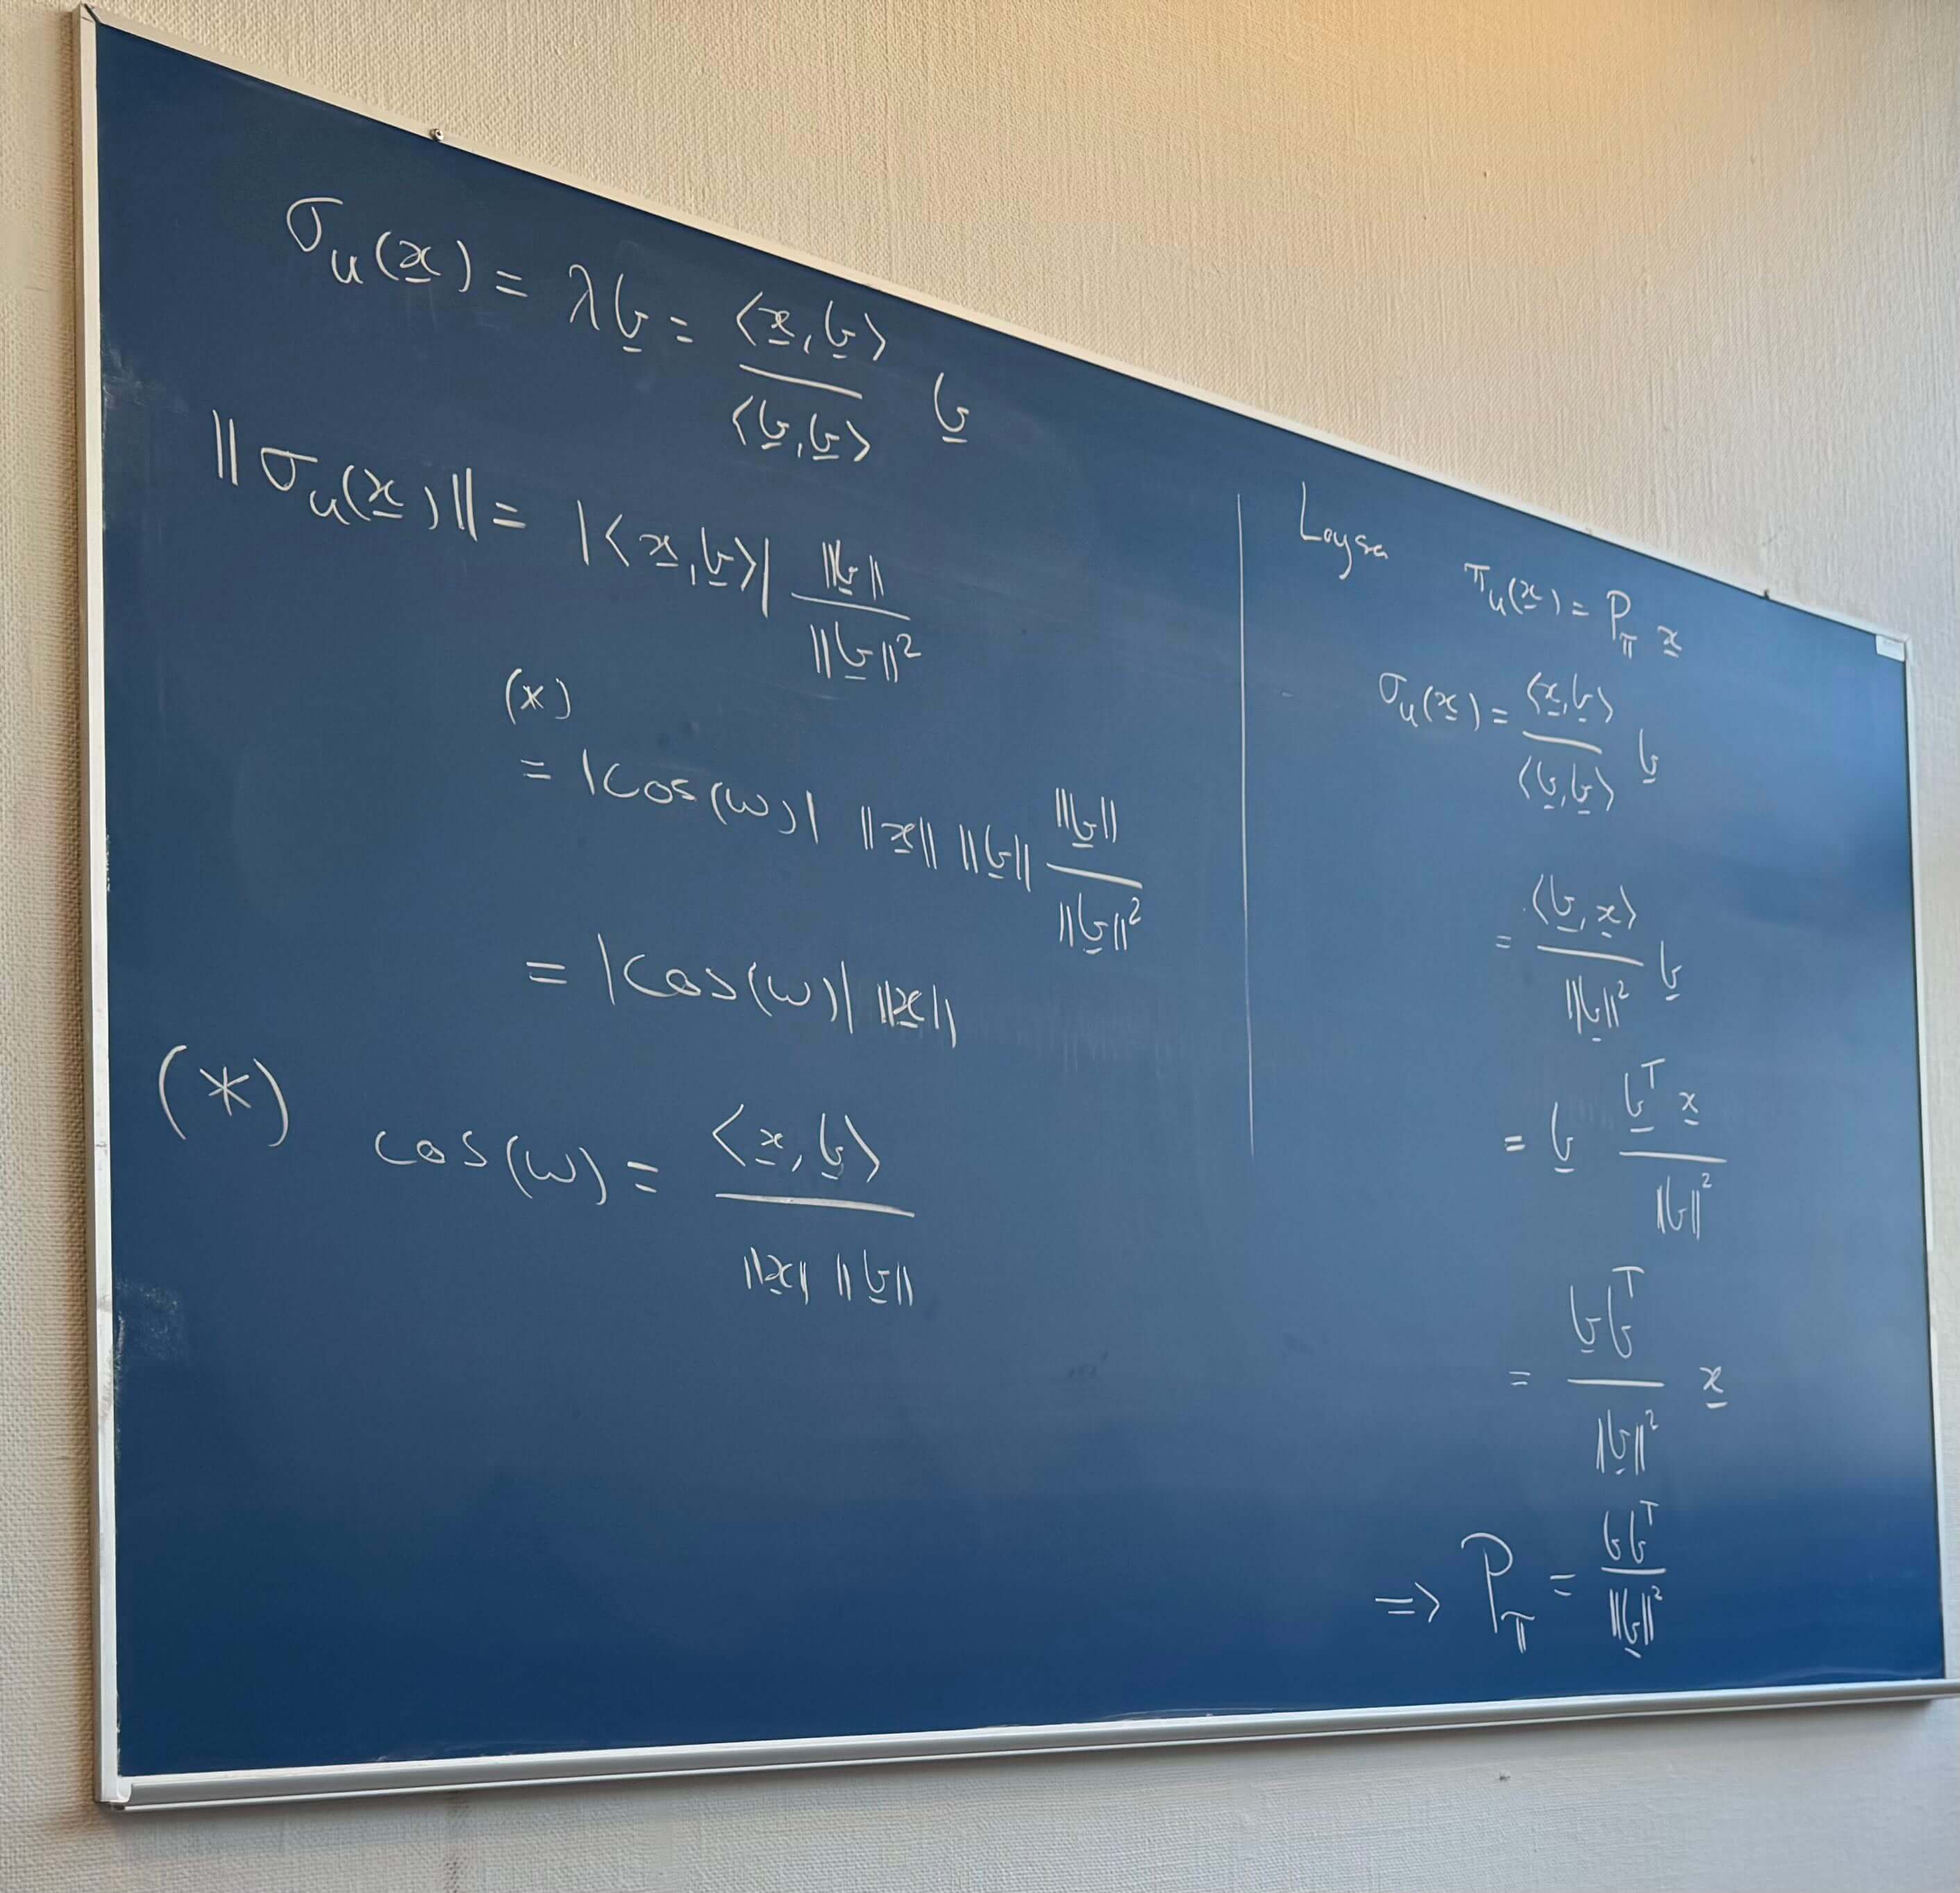 σ_u(x̲) = λb̲ = <x̲, b̲> / <b̲, b̲> b̲
||σ_u(x̲)|| = |<x̲, b̲>| ||b̲|| / ||b̲||²
(*)
= |cos(ω)| ||x̲|| ||b̲|| ||b̲|| / ||b̲||²
= |cos(ω)| ||x̲||
(*) cos(ω) = <x̲, b̲> / ||x̲|| ||b̲||
Loysa π_u(x̲) = P_π x̲
σ_u(x̲) = <x̲, b̲> / <b̲, b̲> b̲
= <b̲, x̲> / ||b̲||² b̲
= b̲ b̲ᵀ x̲ / ||b||²
= b̲bᵀ / ||b̲||² x̲
=> P_π = bbᵀ / ||b̲||²